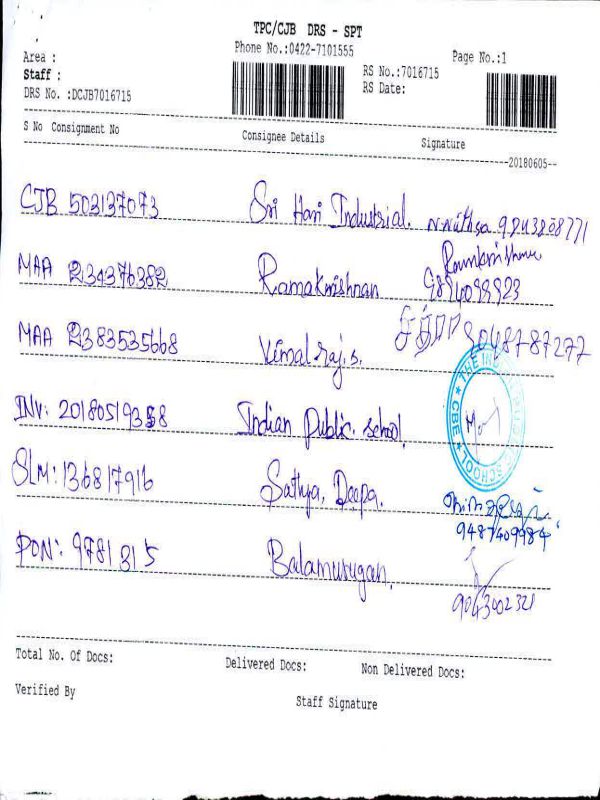 TPC/CJB DRS - SPT
Phone No.:0422-7101555
Page No.:1
Area :
Staff :
DRS No. :DCJB7016715
RS No.:7016715
RS Date:
S No Consignment No Consignee Details Signature
20180605
CJB 503137073 Sri Hari Industrial. 9843208771
MAA 234376382 Ramakrishnan
MAA 2383535668 Vimal raj.s. 9048787277
INV: 20180519358 Indian Public. School.
SLM: 136817916 Sathya, Deepa.
9487409984
PON: 9781315 Balamurugan.
9043002321
Total No. Of Docs: Delivered Docs: Non Delivered Docs:
Verified By Staff Signature